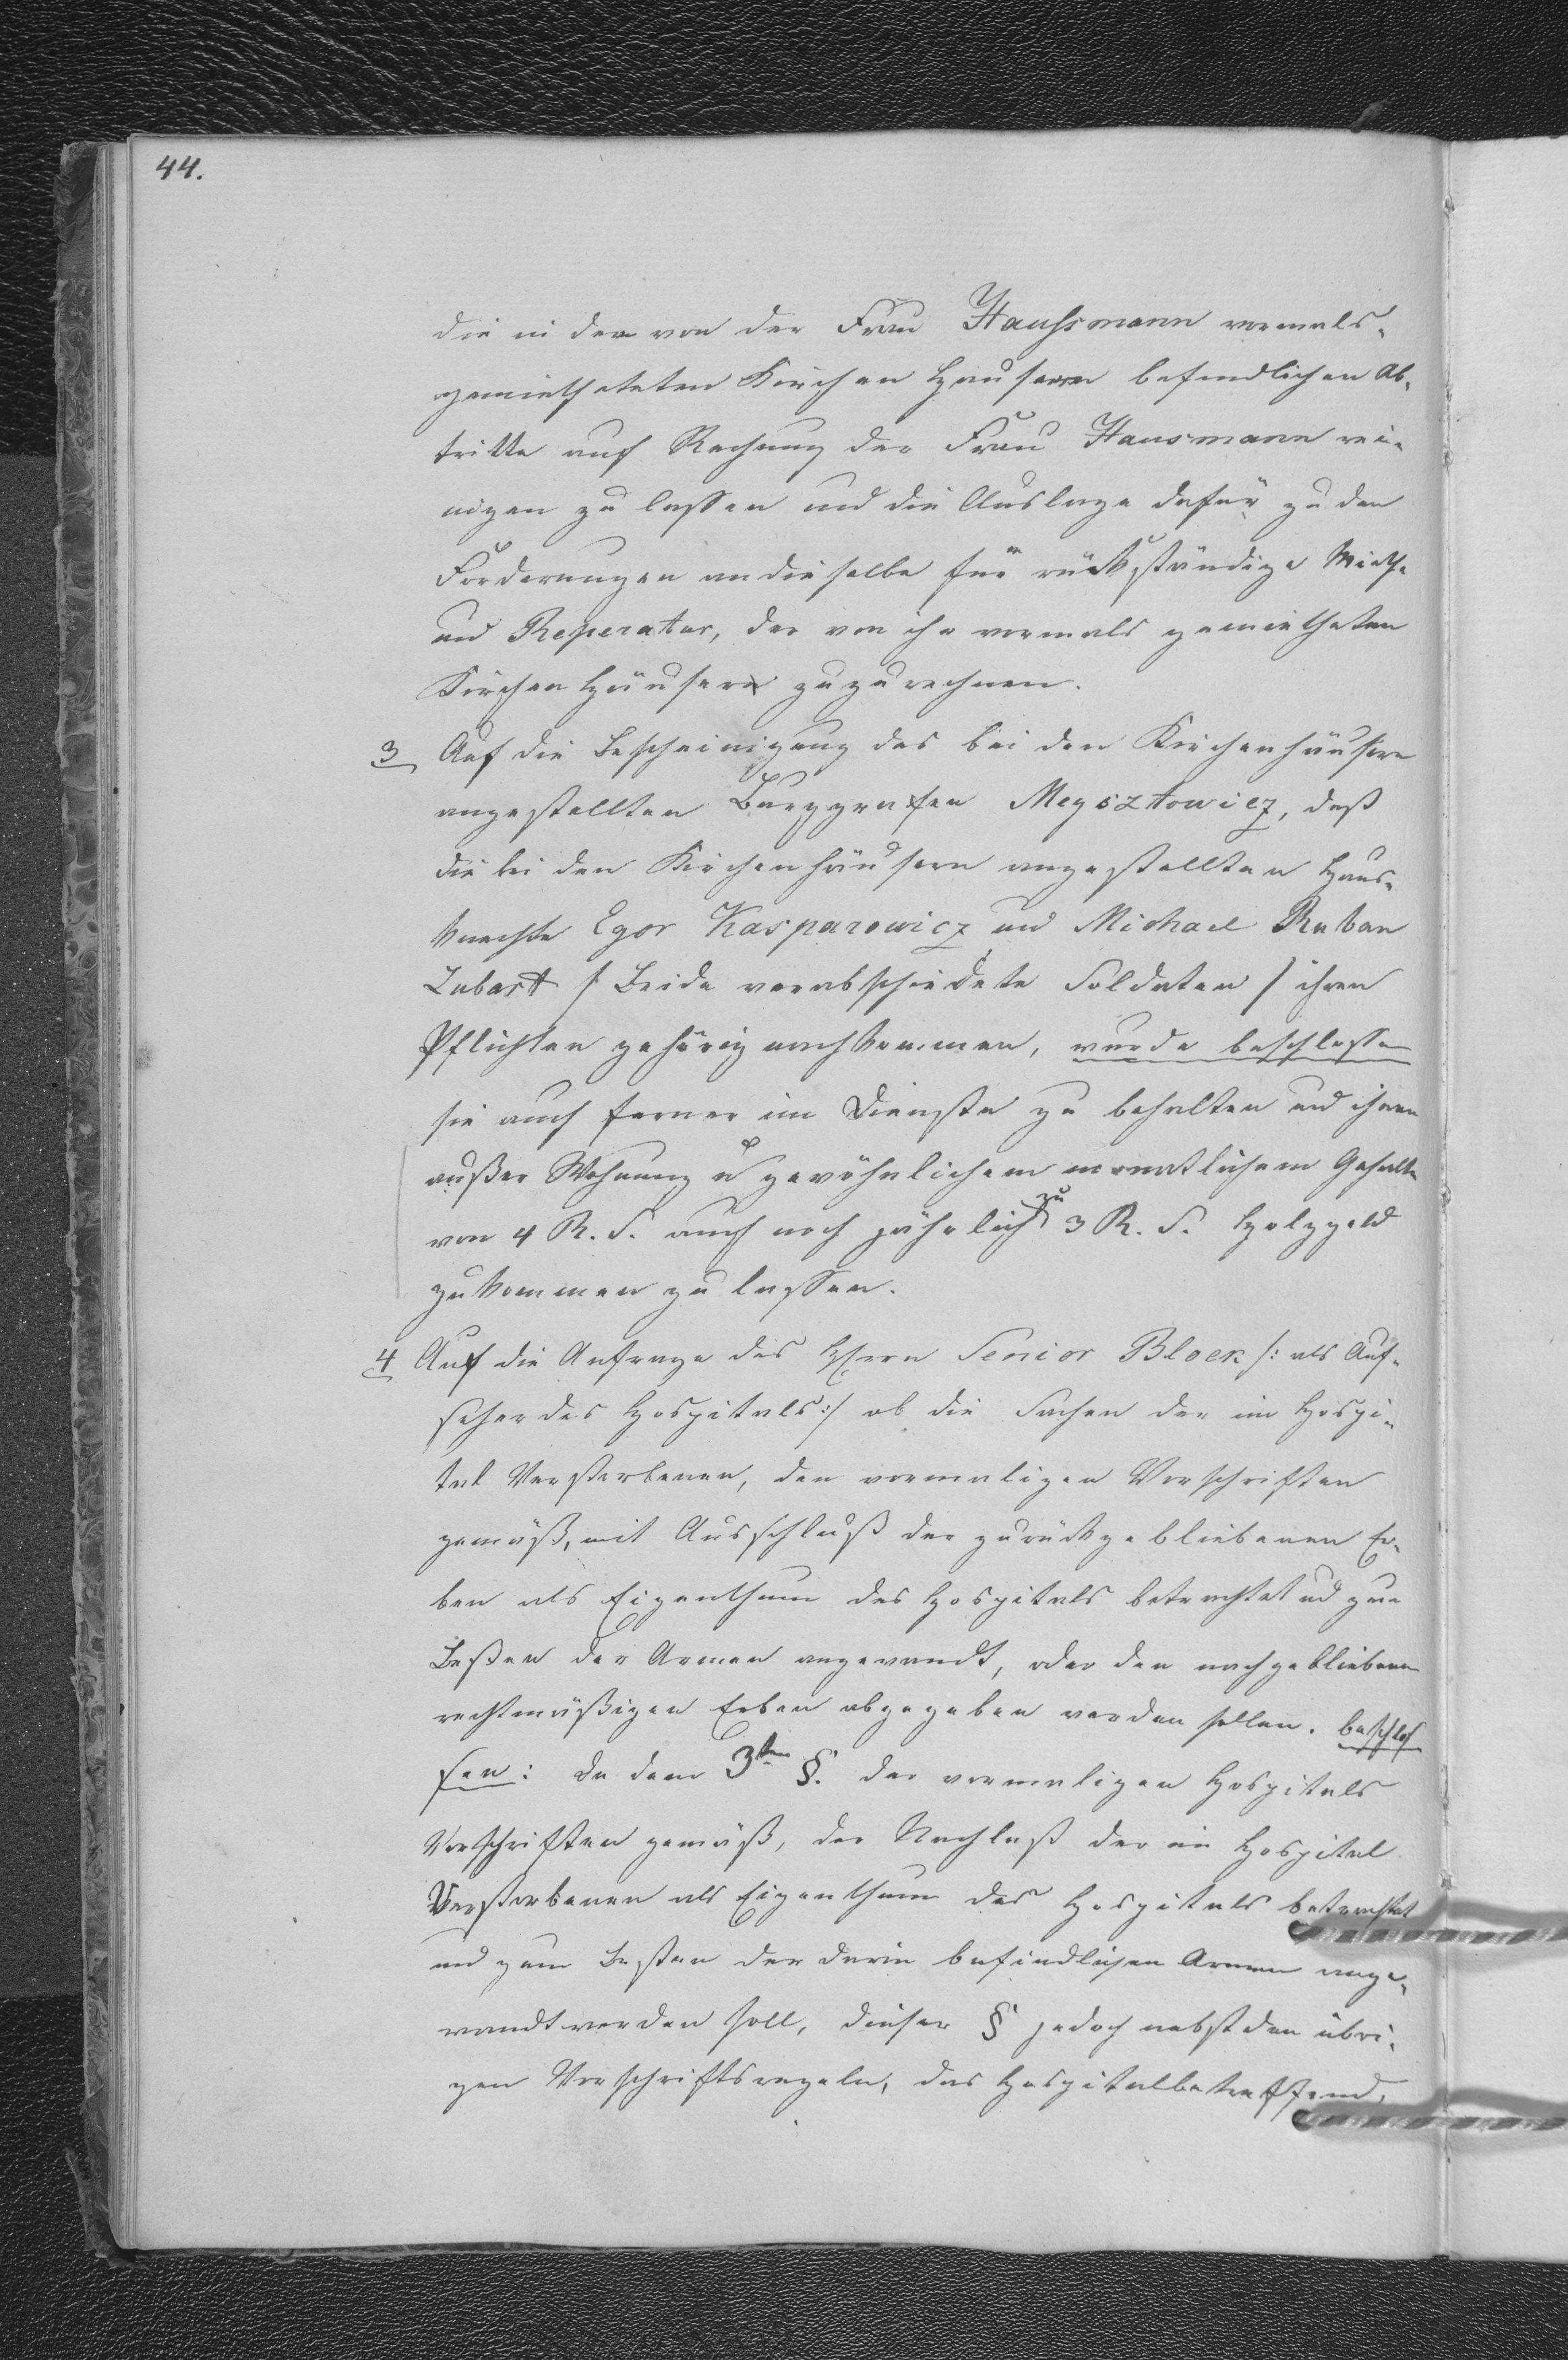 44.
die in den von der Frau Haußmann vormals
gemietheten Kirchen Häusern befindlichen Ab-
tritte auf Rechnung der Frau Hausmann rei-
nigen zu lassen und die Auslage dafür zu den
Forderungen an dieselbe für rückständige Miethe
und Reperatur, der von ihr vormals gemietheten
Kirchen Häuser zuzurechnen.
3 Auf die Bescheinigung des bei den Kirchenhäusern
angestellten Burggrafen Meysztowicz, daß
die bei den Kirchenhäusern angestellten Haus-
knechte Egor Kasparowicz und Michael Ruban
Lubart / Beide verabschiedete Soldaten / ihren
Pflichten gehörig nachkommen, wurde beschlossen
sie auch ferner im Dienste zu behalten und ihnen
außer Wohnung u gewöhnlichem monatlichem Gehalte
von 4 R. S. auch noch jährlich zu 3 R. S. Holzgeld
zukommen zu lassen.
4 Auf die Anfrage des Herrn Senior Block /: als Auf-
seher des Hospitals :/ ob die Sachen der im Hospi-
tal Verstorbenen, den vormaligen Vorschriften
gemäß, mit Ausschluß der zurückgebliebenen Er-
ben als Eigenthum des Hospitals betrachtet und zum
Besten der Armen angewandt, oder den nachgebliebenen
rechtmäßigen Erben abgegeben werden sollen. beschlos
sen: da dem 3ten §. der vormaligen Hospitals
Vorschriften gemäß, der Nachlaß der im Hospital
Verstorbenen als Eigenthum des Hospitals betrachtet
und zum Besten der darin befindlichen Armen ange-
wandt werden soll, dieser § jedoch nebst den übri-
gen Vorschriftsregeln, das Hospital betreffend,